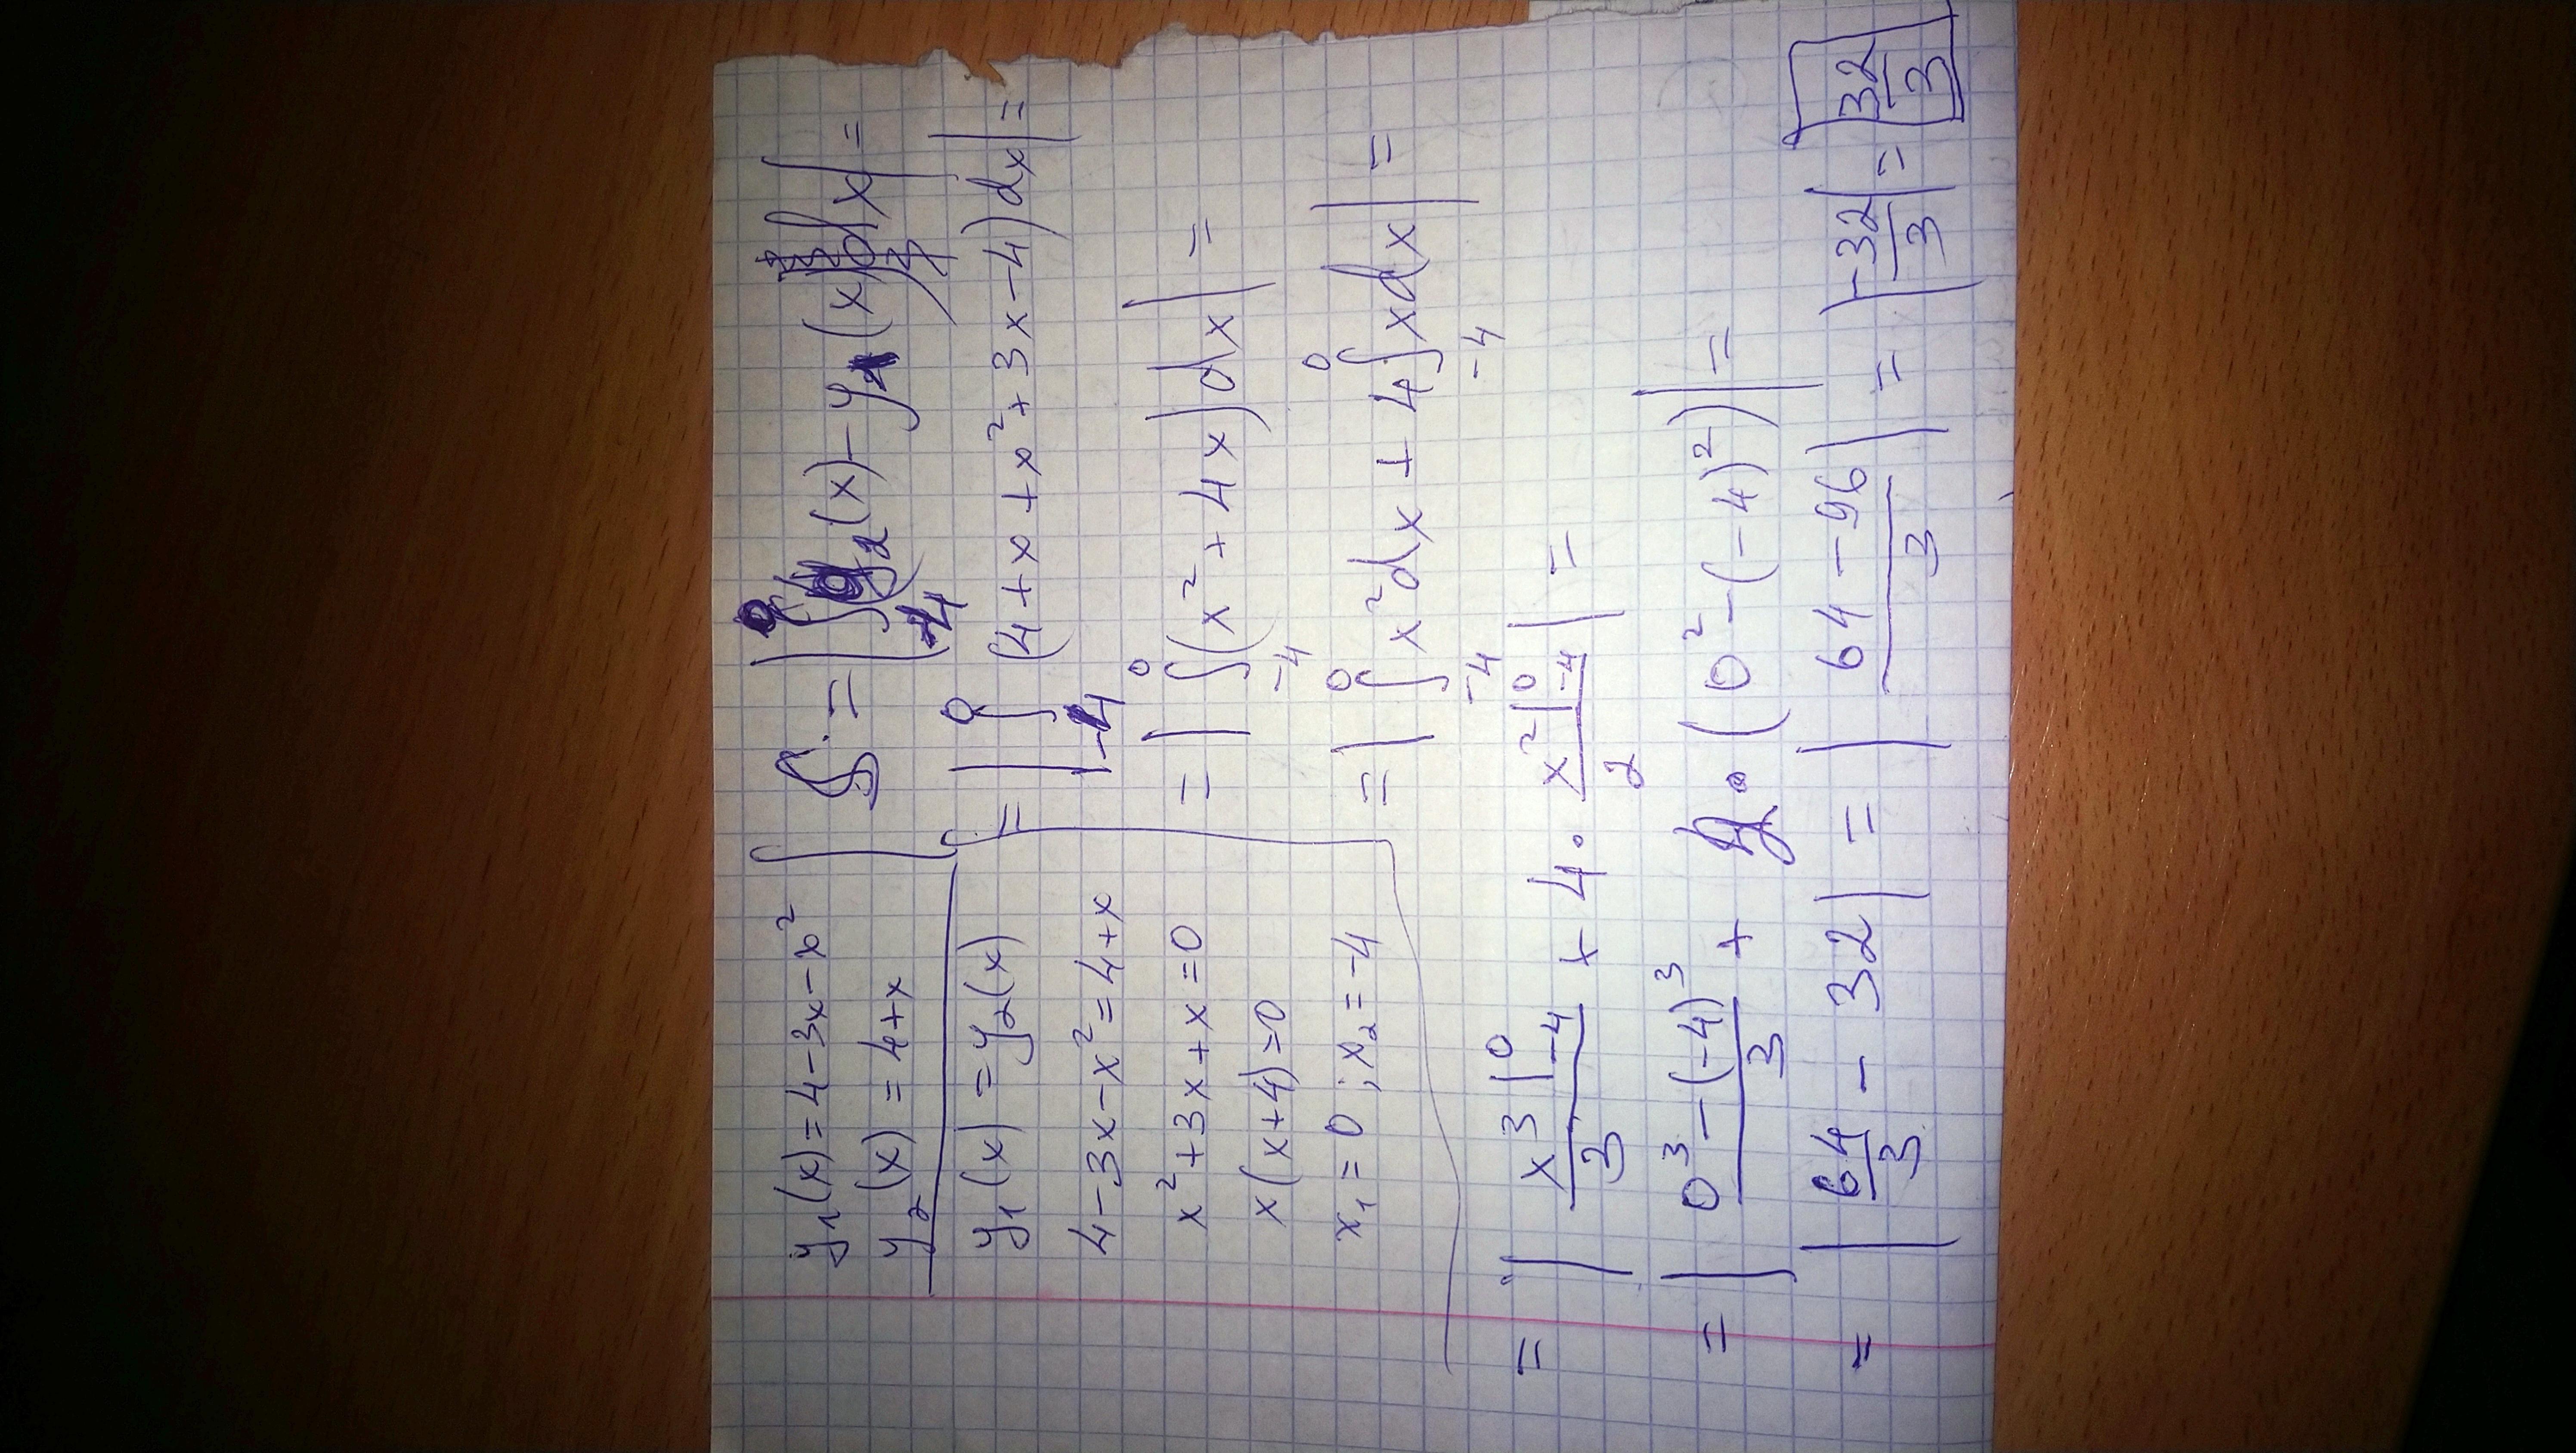 y₁(x) = 4 - 3x - x²
y₂(x) = 4 + x
y₁(x) = y₂(x)
4 - 3x - x² = 4 + x
x² + 3x + x = 0
x(x + 4) = 0
x₁ = 0 ; x₂ = -4
S = |∫₋₄⁰ (y₂(x) - y₁(x)) dx| =
= |∫₋₄⁰ (4 + x + x² + 3x - 4) dx| =
= |∫₋₄⁰ (x² + 4x) dx| =
= |∫₋₄⁰ x² dx + 4 ∫₋₄⁰ x dx| =
= | x³/3 |₋₄⁰ + 4 · x²/2 |₋₄⁰ | =
= | (0³ - (-4)³)/3 + 2 · (0² - (-4)²) | =
= | 64/3 - 32 | = | (64 - 96)/3 | = | -32/3 | = 32/3